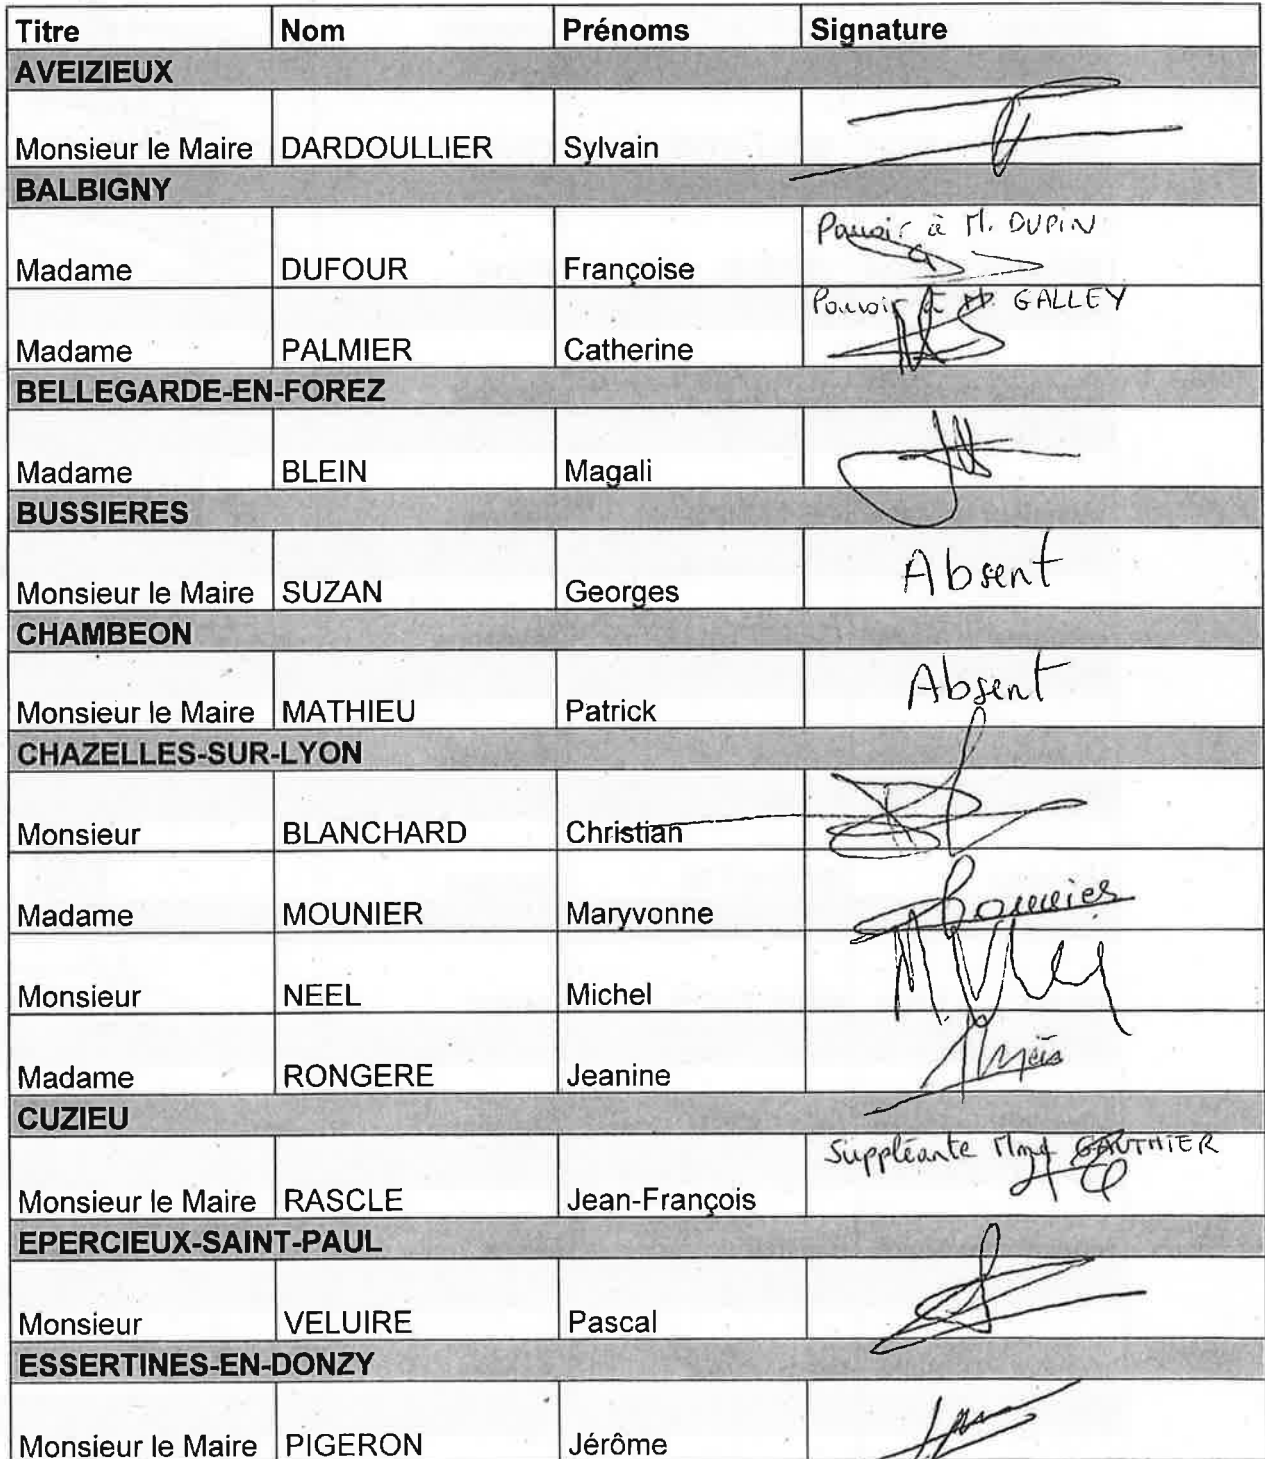 Titre Nom Prénoms Signature
AVEIZIEUX
Monsieur le Maire DARDOULLIER Sylvain
BALBIGNY
Pouvoir à M. DUPIN
Madame DUFOUR Françoise
Pouvoir à M. GALLEY
Madame PALMIER Catherine
BELLEGARDE-EN-FOREZ
Madame BLEIN Magali
BUSSIERES
Monsieur le Maire SUZAN Georges Absent
CHAMBEON
Monsieur le Maire MATHIEU Patrick Absent
CHAZELLES-SUR-LYON
Monsieur BLANCHARD Christian
Madame MOUNIER Maryvonne
Monsieur NEEL Michel
Madame RONGERE Jeanine
CUZIEU
Suppléante Mme GAUTHIER
Monsieur le Maire RASCLE Jean-François
EPERCIEUX-SAINT-PAUL
Monsieur VELUIRE Pascal
ESSERTINES-EN-DONZY
Monsieur le Maire PIGERON Jérôme